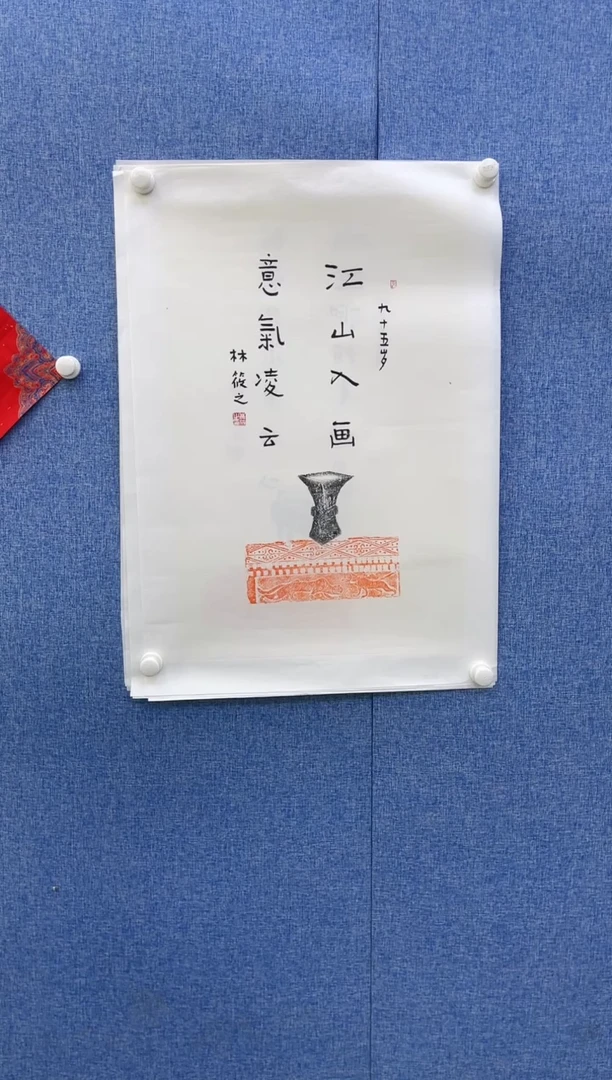 九十五岁
江山入画
意氣凌云
林筱之